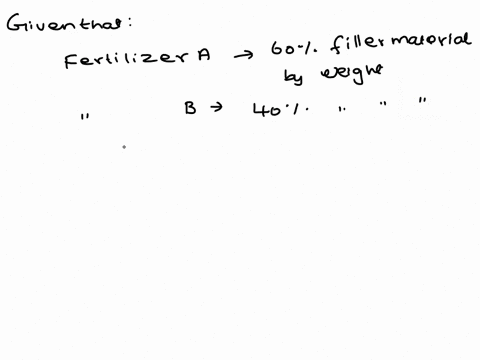 Given that:
Fertilizer A → 60% filler material
by weight
" B → 40% " " "